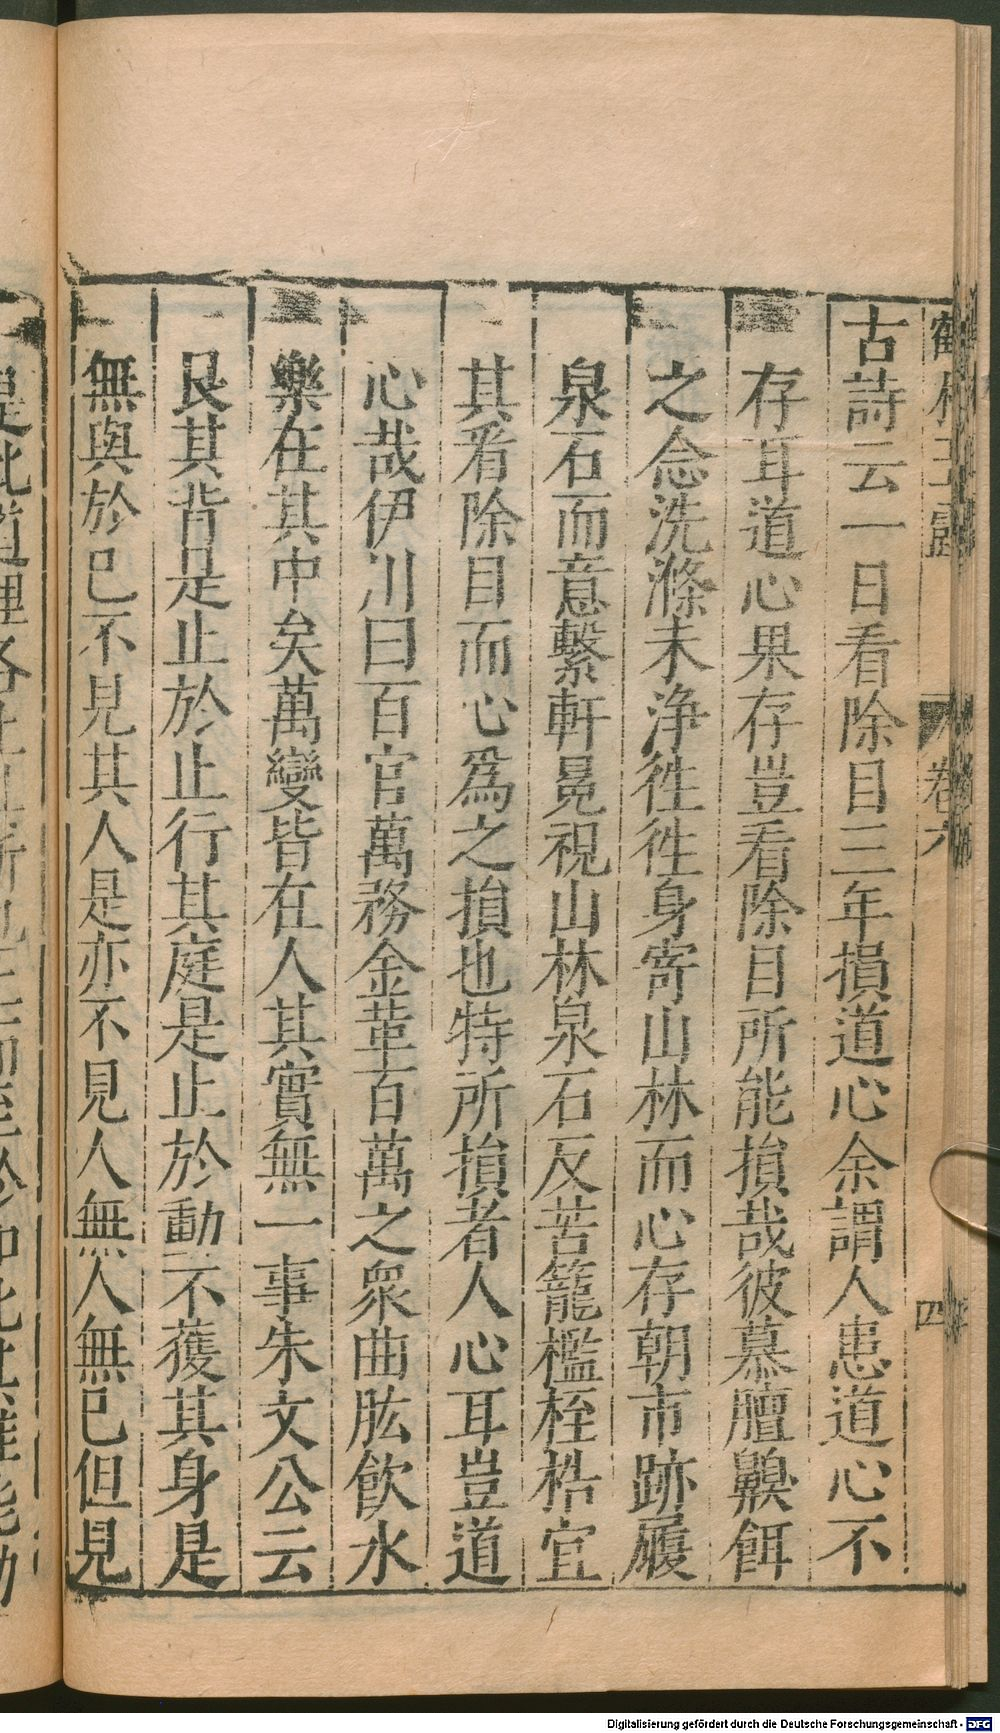 鶴林玉露 卷六 四
古詩云一日看除目三年損道心余謂人患道心不
存耳道心果存豈看除目所能損哉彼慕膻䑕餌
之念洗滌未浄徃徃身寄山林而心存朝市跡履
泉石而意繫軒冕視山林泉石反苦籠檻桎梏宜
其看除目而心爲之損也特所損者人心耳豈道
心哉伊川曰百官萬務金革百萬之衆曲肱飲水
樂在其中矣萬變皆在人其實無一事朱文公云
艮其背是止於止行其庭是止於動不獲其身是
無與於已不見其人是亦不見人無人無已但見
是此道理各止其所也
Digitalisierung gefördert durch die Deutsche Forschungsgemeinschaft - DFG